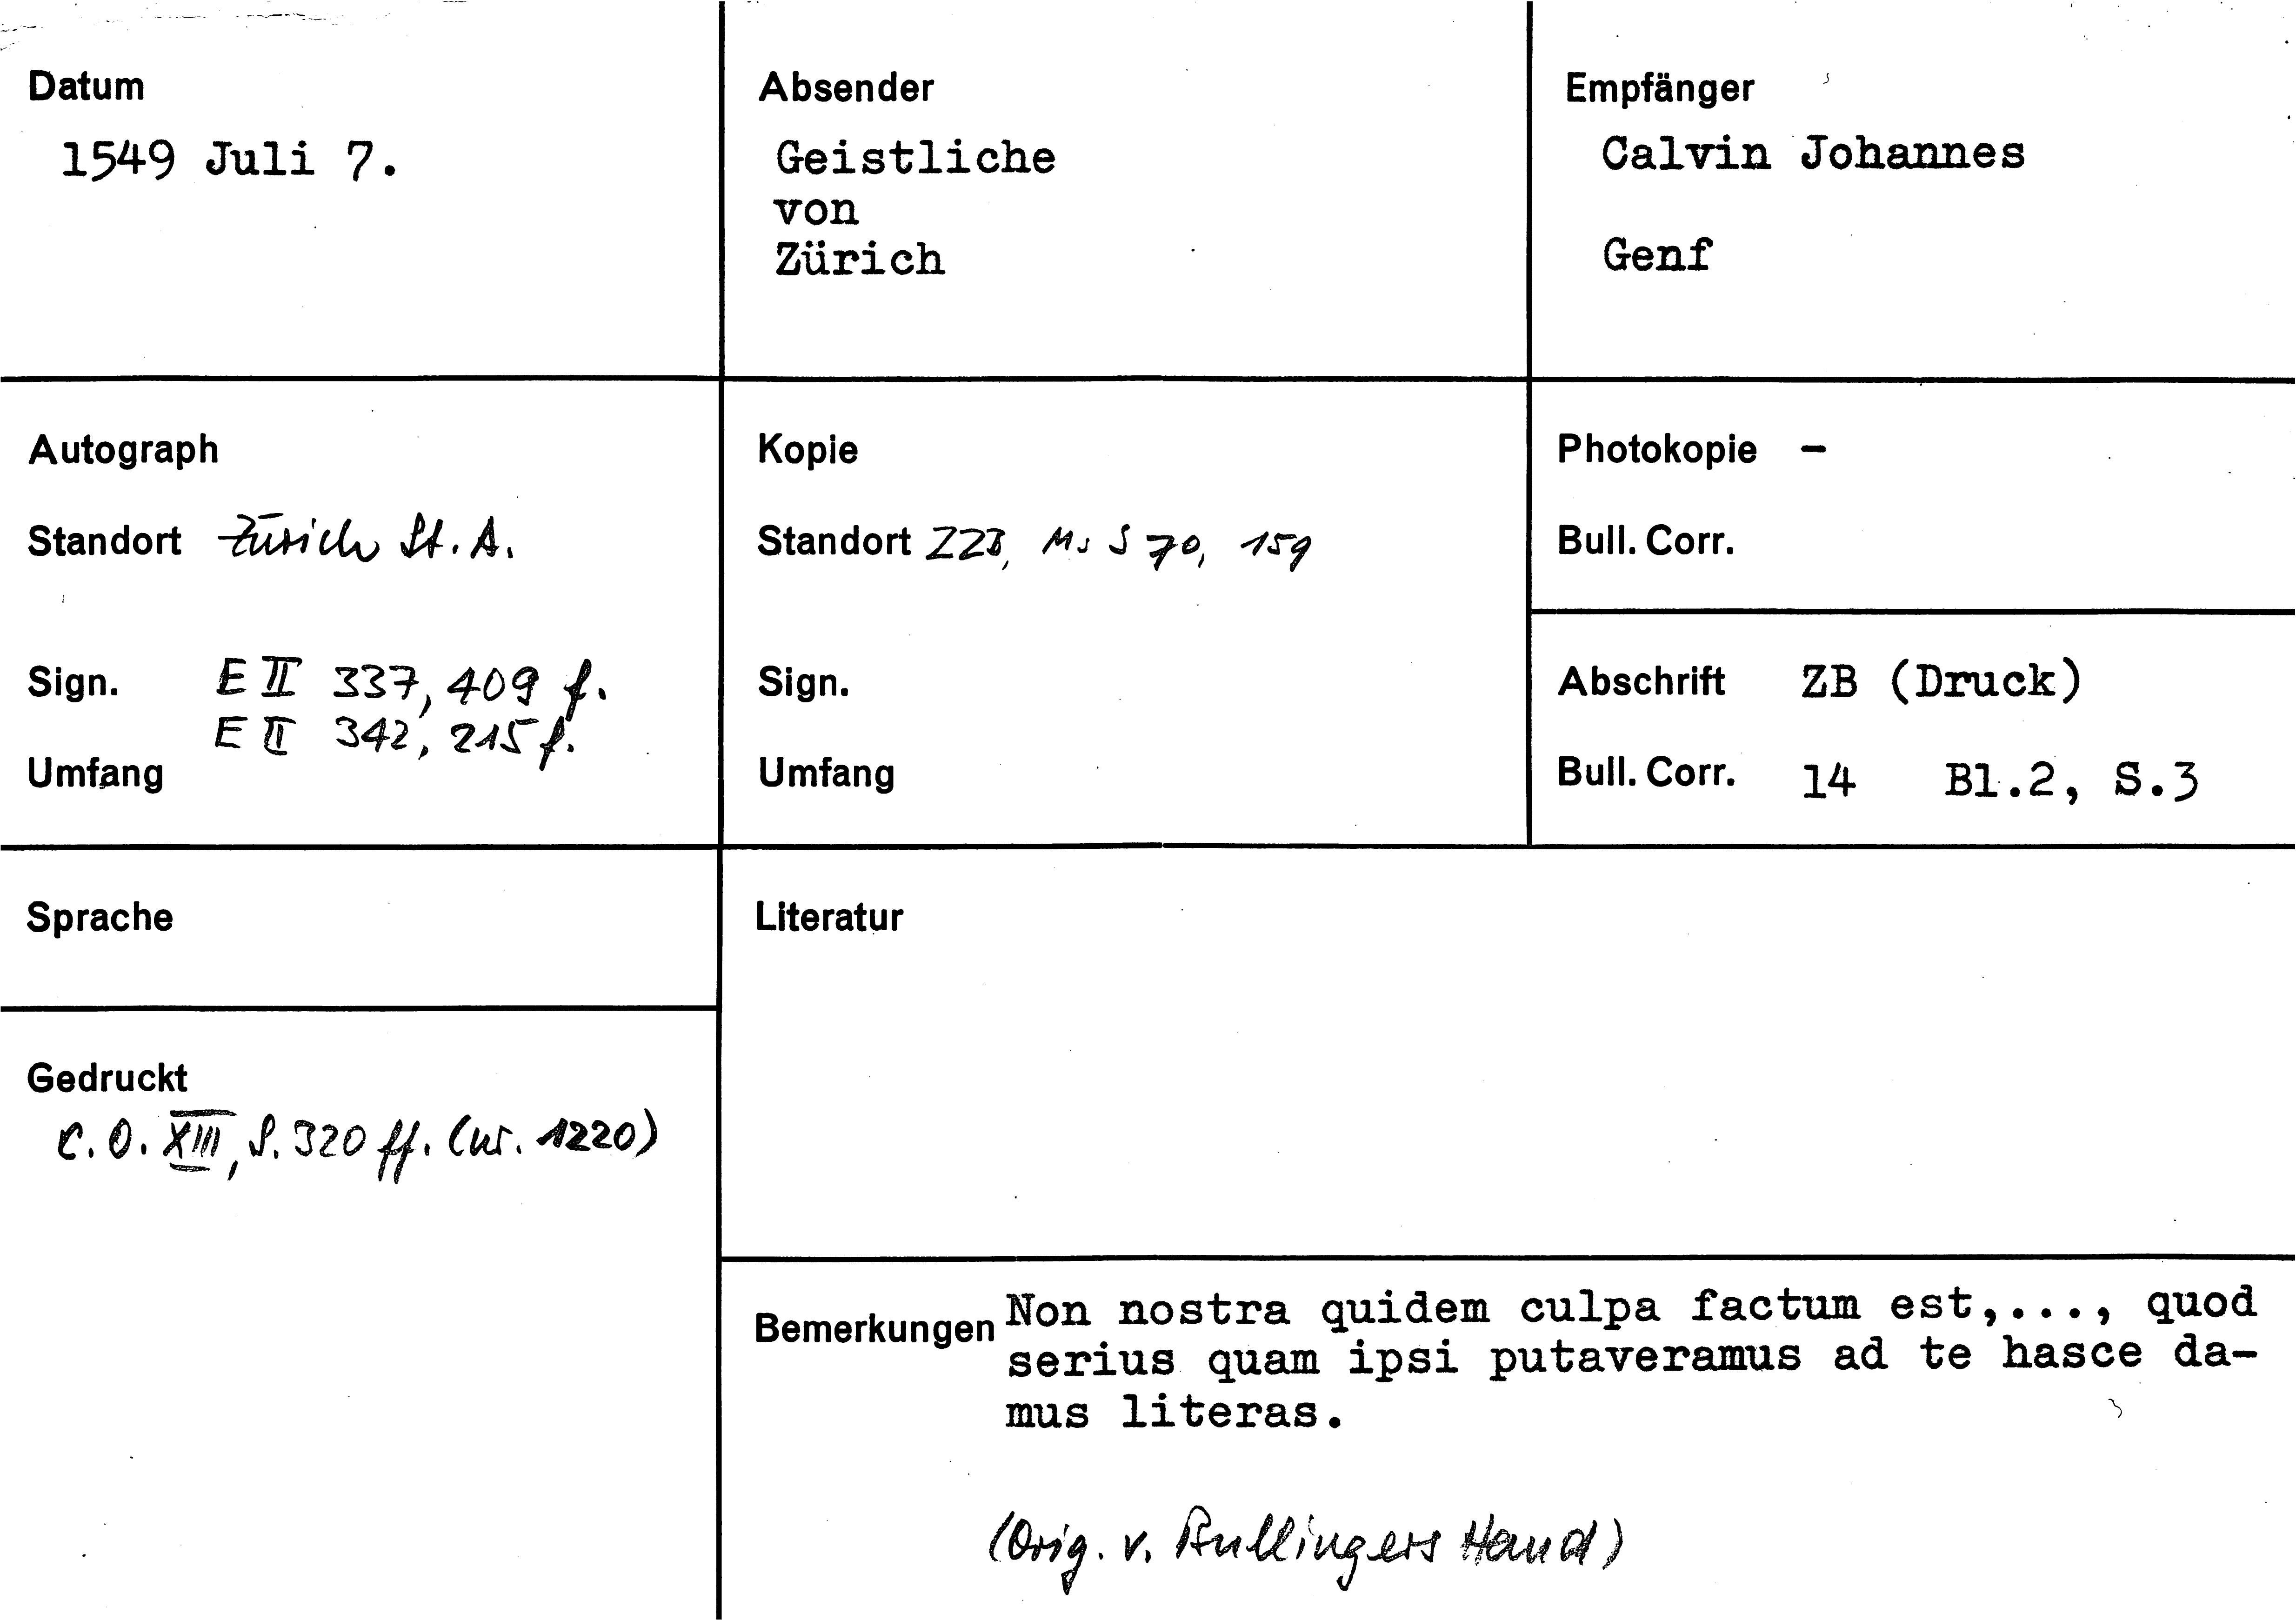 Datum
1549 Juli 7.
Absender
Geistliche
von
Zürich
Empfänger
Calvin Johannes
Genf
Autograph
Standort Zürich St. A.
Sign. E II 337, 409 f.
E II 342, 215 f.
Umfang
Kopie
Standort ZZB, Ms S 70, 159
Sign.
Umfang
Photokopie –
Bull. Corr.
Abschrift ZB (Druck)
Bull. Corr. 14 Bl.2, S.3
Sprache
Gedruckt
C.O. XIII, S. 320 ff. (nr. 1220)
Literatur
Bemerkungen Non nostra quidem culpa factum est,..., quod
serius quam ipsi putaveramus ad te hasce da-
mus literas.
(Orig. v. Bullingers Hand)